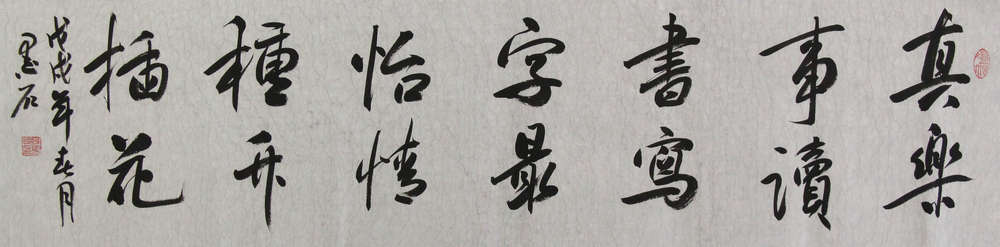 真樂
事讀
書寫
字最
怡情
種竹
插花
戊戌年春月
墨石